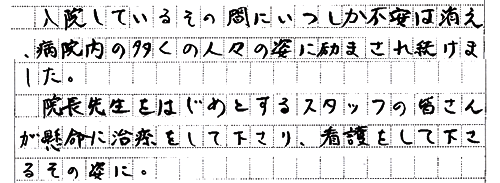 入院しているその間にいつしか不安は消え
、病院内の多くの人々の姿に励まされ続けま
した。
院長先生をはじめとするスタッフの皆さん
が懸命に治療をして下さり、看護をして下さ
るその姿に。